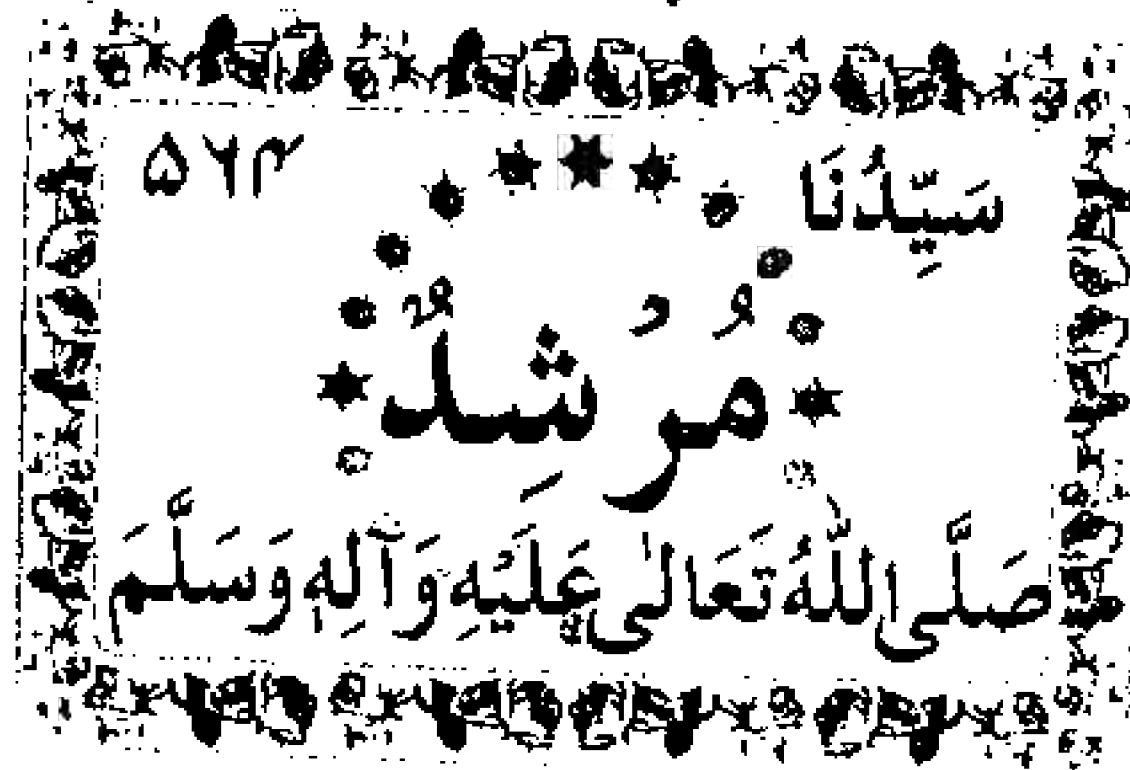 سَيِّدُنَا ۵۶۳
مُرْشِدٌ
صَلَّى اللّٰهُ تَعَالٰى عَلَيْهِ وَآلِهٖ وَسَلَّمَ